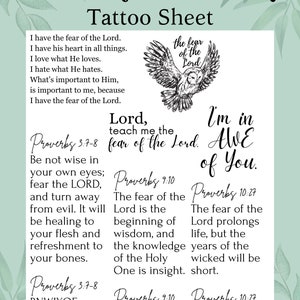 Tattoo Sheet
I have the fear of the Lord.
I have his heart in all things.
I love what He loves.
I hate what He hates.
What's important to Him,
is important to me, because
I have the fear of the Lord.
the fear
of the
Lord
Lord,
teach me the
fear of the Lord.
I'm in
AWE
of You.
Proverbs 3.7-8
Be not wise in
your own eyes;
fear the LORD,
and turn away
from evil. It will
be healing to
your flesh and
refreshment to
your bones.
Proverbs 9.10
The fear of the
Lord is the
beginning of
wisdom, and
the knowledge
of the Holy
One is insight.
Proverbs 10.27
The fear of the
Lord prolongs
life, but the
years of the
wicked will be
short.
Proverbs 3.7-8